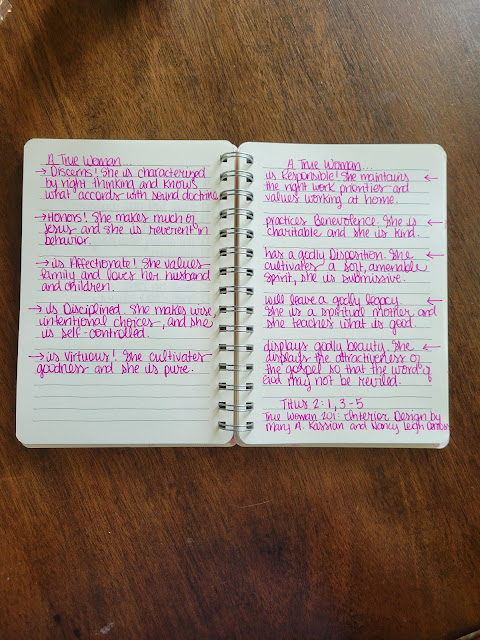 A True Woman...
→ Discerns! She is characterized
by right thinking and knows
what accords with sound doctrine.
→ Honors! She makes much of
Jesus and she is reverent in
behavior.
→ is Affectionate! She values
family and loves her husband
and children.
→ is Disciplined. She makes wise,
intentional choices, and she
is self-controlled.
→ is Virtuous! She cultivates
goodness and she is pure.
A True Woman...
is Responsible! She maintains ←
the right work priorities and
values working at home.
practices Benevolence. She is ←
charitable and she is kind.
has a godly Disposition. She ←
cultivates a soft, amenable
spirit, she is submissive.
will leave a godly legacy. ←
She is a spiritual mother and
she teaches what is good.
displays godly beauty. She ←
displays the attractiveness of
the gospel so that the word of
God may not be reviled.
Titus 2:1, 3-5
True Woman 201: Interior Design by
Mary A. Kassian and Nancy Leigh